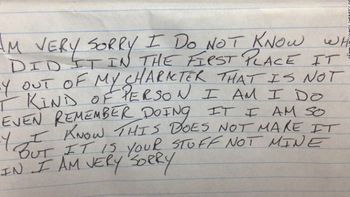 AM VERY SORRY I DO NOT KNOW WH
DID IT IN THE FIRST PLACE IT
Y OUT OF MY CHARICTER THAT IS NOT
T KIND OF PERSON I AM I DO
EVEN REMEMBER DOING IT I AM SO
Y I KNOW THIS DOES NOT MAKE IT
BUT IT IS YOUR STUFF NOT MINE
IN I AM VERY SORRY